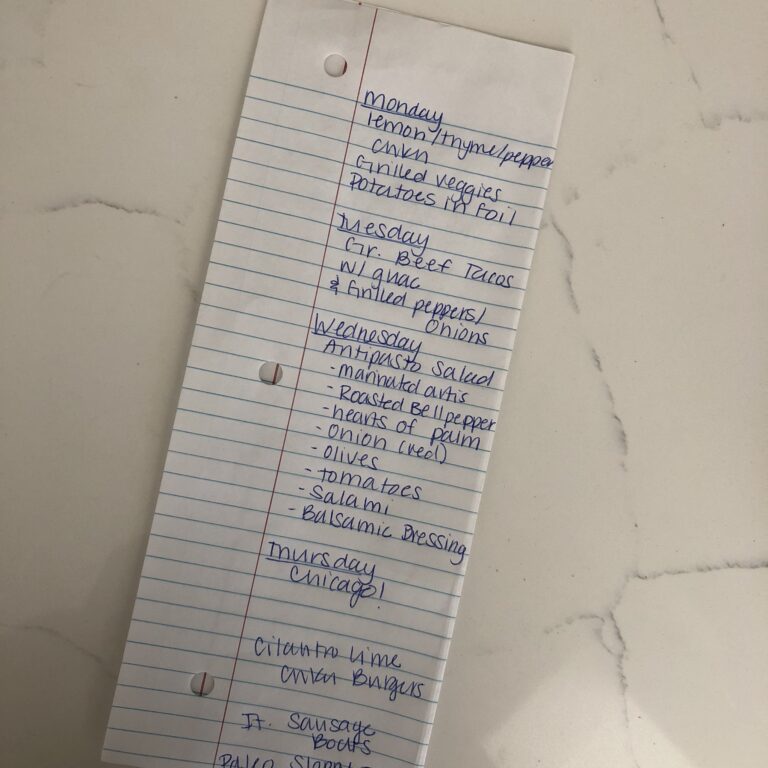 Monday
lemon/thyme/pepper
chkn
Grilled veggies
Potatoes in foil
Tuesday
Gr. Beef Tacos
w/ guac
& Grilled peppers/
Onions
Wednesday
Antipasto Salad
- marinated artis
- Roasted Bell pepper
- hearts of palm
- Onion (red)
- Olives
- tomatoes
- Salami
- Balsamic Dressing
Thursday
Chicago!
Cilantro Lime
Chkn Burgers
It. Sausage
Boats
Paleo